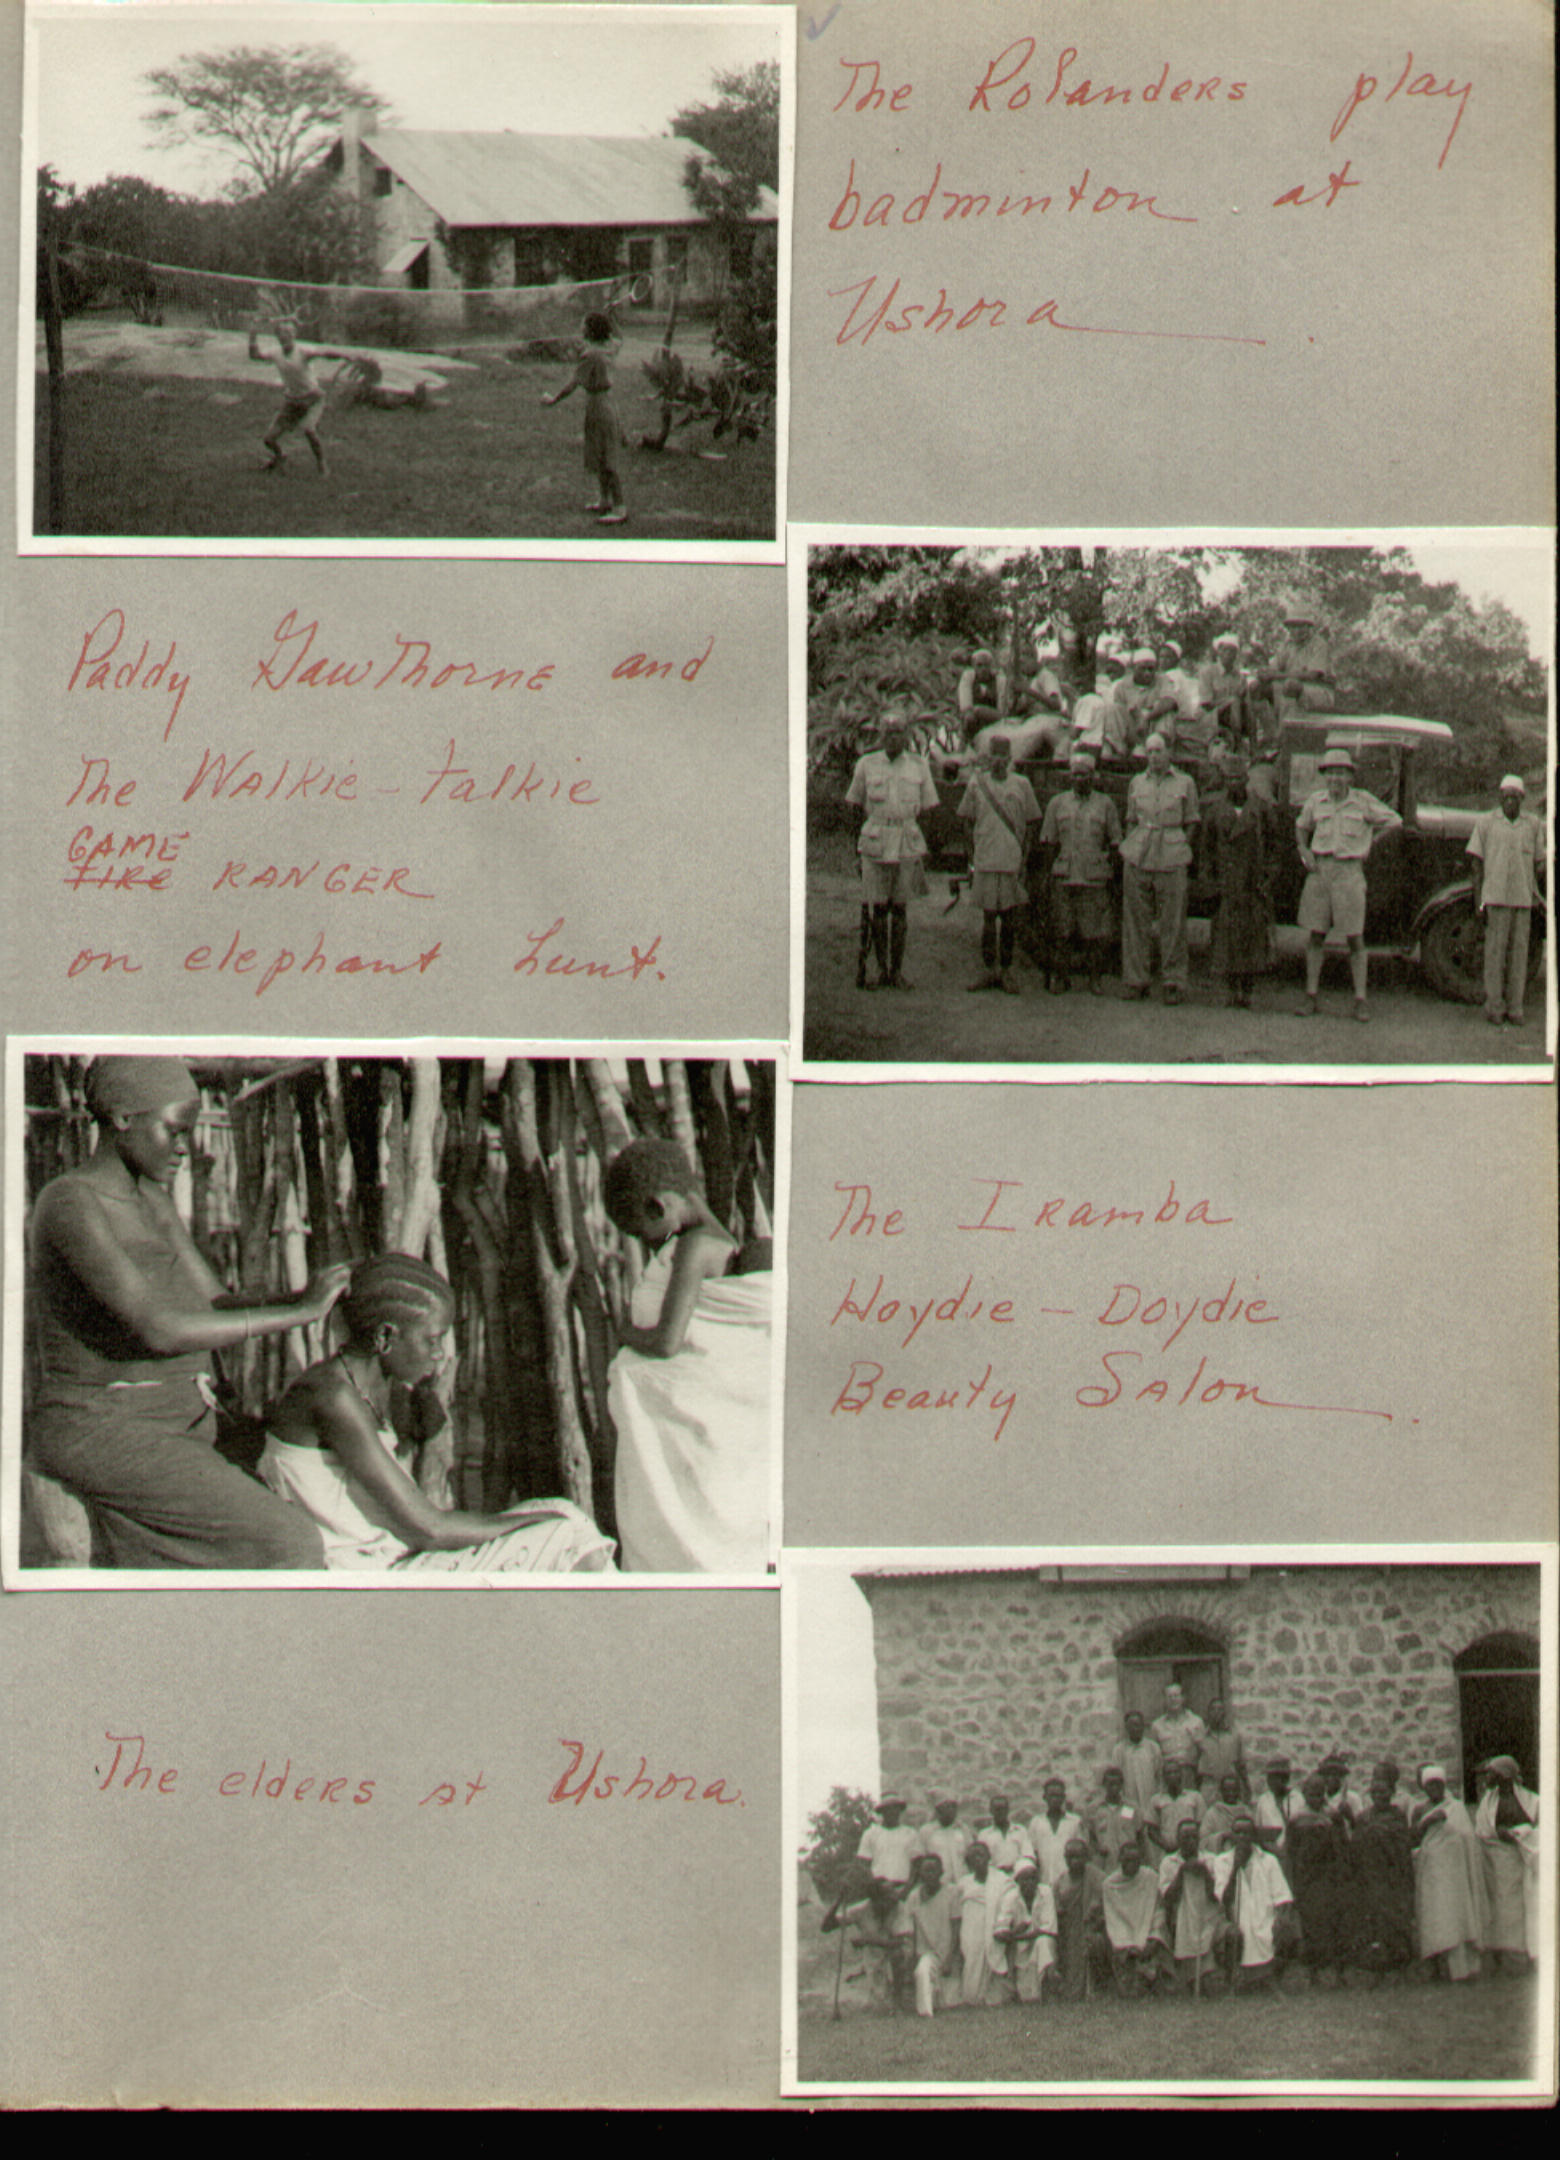 The Rolanders play
badminton at
Ushora.
Paddy Gawthorne and
The Walkie-talkie
GAME
FIRE RANGER
on elephant hunt.
The Iramba
Hoydie-Doydie
Beauty Salon.
The elders at Ushora.